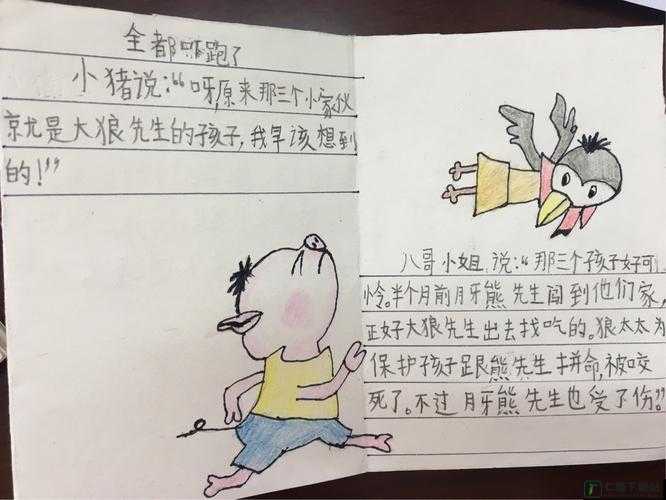 全都吓跑了
小猪说:“呀,原来那三个小家伙
就是大狼先生的孩子,我早该想到
的!”
八哥小姐说:“那三个孩子好可
怜。半个月前月牙熊先生闯到他们家,
正好大狼先生出去找吃的。狼太太为
保护孩子跟熊先生拼命,被咬
死了。不过月牙熊先生也受了伤。”